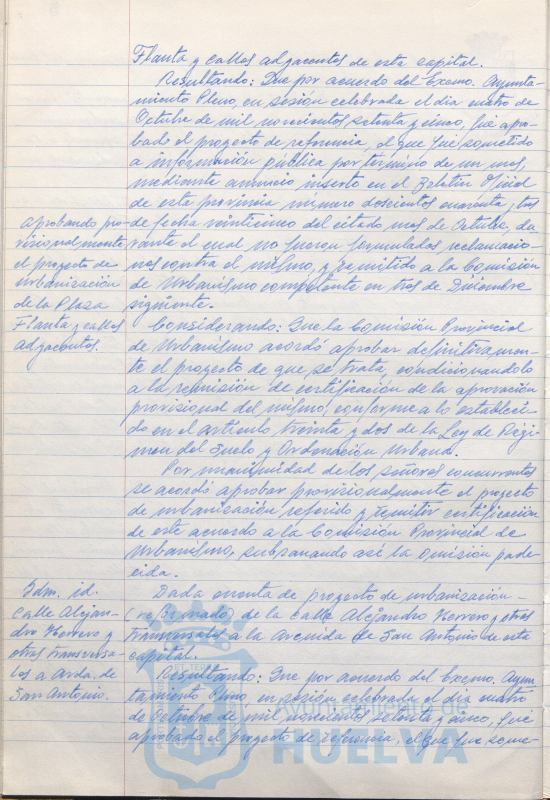 Planta y calles adyacentes de esta capital.
Resultando: Que por acuerdo del Excmo. Ayunta-
miento Pleno, en sesión celebrada el día cuatro de
Octubre de mil novecientos setenta y cinco, fué apro-
bado el proyecto de referencia, el que fué sometido
a información pública por término de un mes,
mediante anuncio inserto en el Boletín Oficial
de esta provincia número doscientos cuarenta y tres
de fecha veinticinco del citado mes de Octubre, du-
rante el cual no fueron formuladas reclamacio-
nes contra el mismo, y remitido a la Comisión
de Urbanismo competente en tres de Diciembre
siguiente.
Aprobando pro-
visionalmente
el proyecto de
urbanización
de la Plaza
Planta y calles
adyacentes.
Considerando: Que la Comisión Provincial
de Urbanismo acordó aprobar definitivamen-
te el proyecto de que se trata, condicionandolo
a la remisión de certificación de la aprobación
provisional del mismo, conforme a lo estableci-
do en el artículo treinta y dos de la Ley de Régi-
men del Suelo y Ordenación Urbana.
Por unanimidad de los señores concurrentes
se acordó aprobar provisionalmente el proyecto
de urbanización referido y remitir certificación
de este acuerdo a la Comisión Provincial de
Urbanismo, subsanando así la omisión pade-
cida.
Idm. id.
Calle Alejan-
dro Herrero y
otras transversa-
les a Avda. de
San Antonio.
Dada cuenta de proyecto de urbanización
de la Calle Alejandro Herrero y otras
transversales a la Avenida de San Antonio de esta
capital.
Resultando: Que por acuerdo del Excmo. Ayun-
tamiento Pleno en sesión celebrada el día cuatro
de Octubre de mil novecientos setenta y cinco, fué
aprobado el proyecto de referencia, el que fué some-
Ayuntamiento de
HUELVA